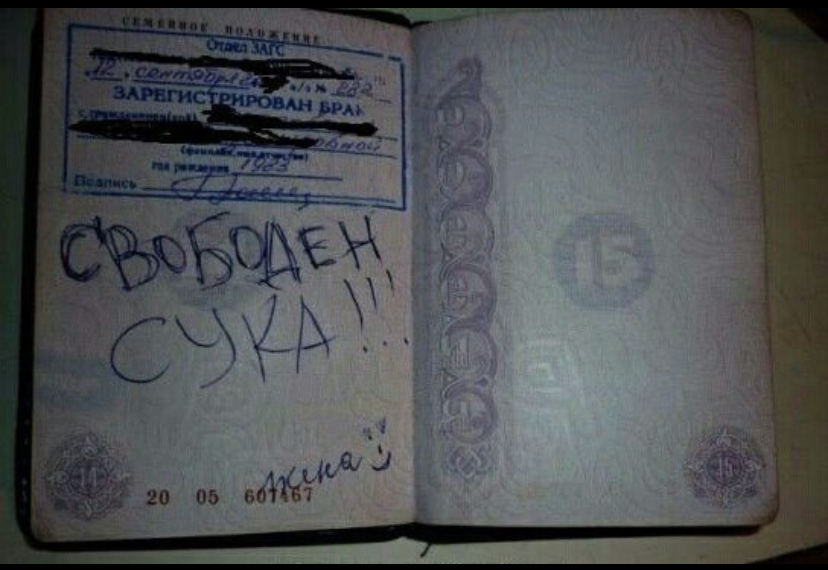 СЕМЕЙНОЕ ПОЛОЖЕНИЕ
Отдел ЗАГС
12 сентября а/з № 882
ЗАРЕГИСТРИРОВАН БРАК
с гражданином(кой)
овной
(фамилия, имя, отчество)
год рождения 1983
Подпись
СВОБОДЕН
СУКА!!!
жена
14
20 05 601467
15
15